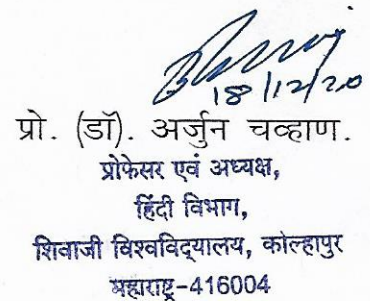 18/12/20
प्रो. (डॉ). अर्जुन चव्हाण.
प्रोफेसर एवं अध्यक्ष,
हिंदी विभाग,
शिवाजी विश्वविद्यालय, कोल्हापुर
महाराष्ट्र-416004